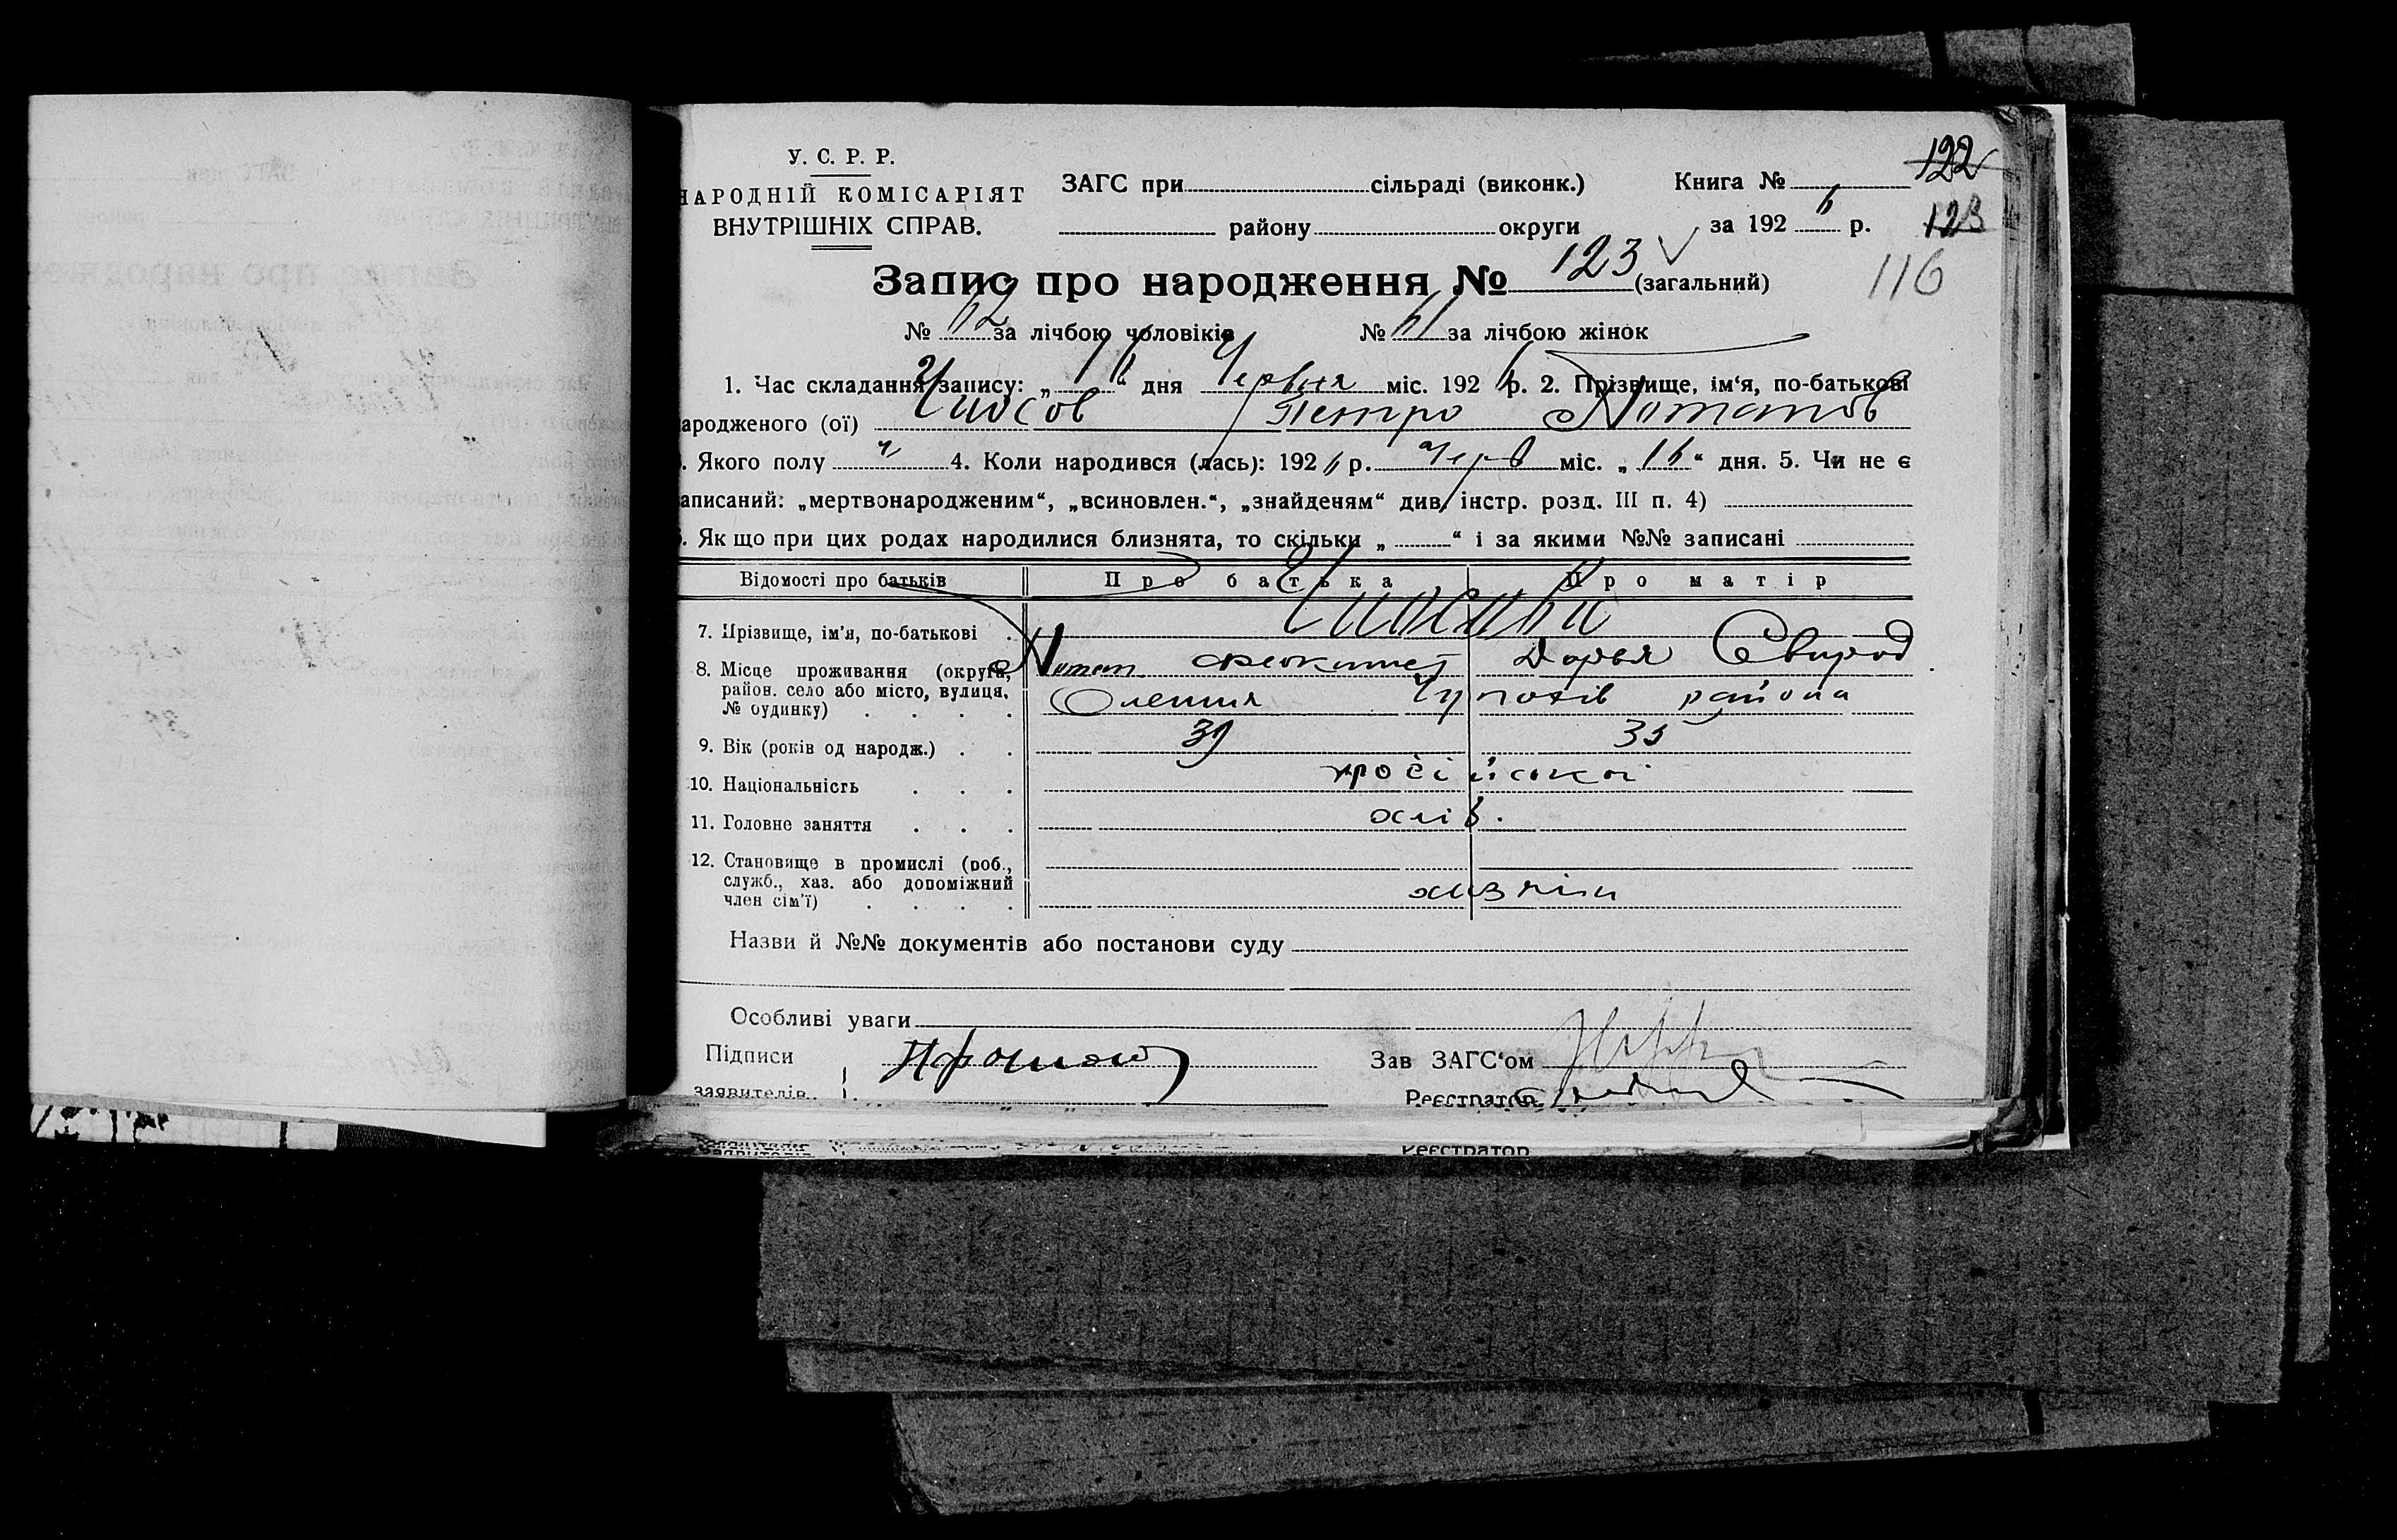 У. С. Р. Р.
НАРОДНІЙ КОМІСАРІЯТ
ВНУТРІШНІХ СПРАВ.
ЗАГС при сільраді (виконк.)
району округи
Книга №
за 1926 р.
122
123
116
Запис про народження № 123 (загальний)
№ 62 за лічбою чоловіків № 61 за лічбою жінок
1. Час складання запису: „16“ дня Червня міс. 1926 р. 2. Прізвище, ім‘я, по-батькові
ародженого (ої) Петро Потапов
. Якого полу ч 4. Коли народився (лась): 1926 р. Черв міс. „16“ дня. 5. Чи не є
аписаний: „мертвонародженим“, „всиновлен.“, „знайденям“ див. інстр. розд. III п. 4)
. Якщо при цих родах народилися близнята, то скільки „ “ і за якими №№ записані
Відомості про батьків Про батька Про матір
7. Прізвище, ім'я, по-батькові
Потап Дарья Свирид
8. Місце проживання (округа,
район. село або місто, вулиця,
№ будинку)
района
9. Вік (років од народж.) 39 35
10. Національність
11. Головне заняття хліб.
12. Становище в промислі (роб.,
служб., хаз. або допоміжний
член сім'ї)
Назви й №№ документів або постанови суду
Особливі уваги
Підписи
заявителів.
Зав ЗАГС‘ом
Реєстратор
Реєстратор